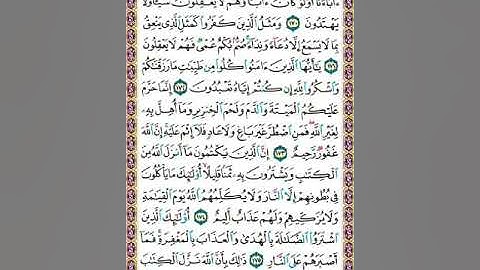 ءَابَآءَنَآ أَوَلَوْ كَانَ ءَابَآؤُهُمْ لَا يَعْقِلُونَ شَيْـًٔا وَلَا
يَهْتَدُونَ ١٧٠ وَمَثَلُ ٱلَّذِينَ كَفَرُوا۟ كَمَثَلِ ٱلَّذِى يَنْعِقُ
بِمَا لَا يَسْمَعُ إِلَّا دُعَآءً وَنِدَآءً صُمٌّۢ بُكْمٌ عُمْىٌ فَهُمْ لَا يَعْقِلُونَ
١٧١ يَـٰٓأَيُّهَا ٱلَّذِينَ ءَامَنُوا۟ كُلُوا۟ مِن طَيِّبَـٰتِ مَا رَزَقْنَـٰكُمْ
وَٱشْكُرُوا۟ لِلَّهِ إِن كُنتُمْ إِيَّاهُ تَعْبُدُونَ ١٧٢ إِنَّمَا حَرَّمَ
عَلَيْكُمُ ٱلْمَيْتَةَ وَٱلدَّمَ وَلَحْمَ ٱلْخِنزِيرِ وَمَآ أُهِلَّ بِهِۦ
لِغَيْرِ ٱللَّهِ فَمَنِ ٱضْطُرَّ غَيْرَ بَاغٍ وَلَا عَادٍ فَلَآ إِثْمَ عَلَيْهِ إِنَّ ٱللَّهَ
غَفُورٌ رَّحِيمٌ ١٧٣ إِنَّ ٱلَّذِينَ يَكْتُمُونَ مَآ أَنزَلَ ٱللَّهُ مِنَ
ٱلْكِتَـٰبِ وَيَشْتَرُونَ بِهِۦ ثَمَنًا قَلِيلًا أُو۟لَـٰٓئِكَ مَا يَأْكُلُونَ
فِى بُطُونِهِمْ إِلَّا ٱلنَّارَ وَلَا يُكَلِّمُهُمُ ٱللَّهُ يَوْمَ ٱلْقِيَـٰمَةِ
وَلَا يُزَكِّيهِمْ وَلَهُمْ عَذَابٌ أَلِيمٌ ١٧٤ أُو۟لَـٰٓئِكَ ٱلَّذِينَ
ٱشْتَرَوُا۟ ٱلضَّلَـٰلَةَ بِٱلْهُدَىٰ وَٱلْعَذَابَ بِٱلْمَغْفِرَةِ فَمَآ
أَصْبَرَهُمْ عَلَى ٱلنَّارِ ١٧٥ ذَٰلِكَ بِأَنَّ ٱللَّهَ نَزَّلَ ٱلْكِتَـٰبَ